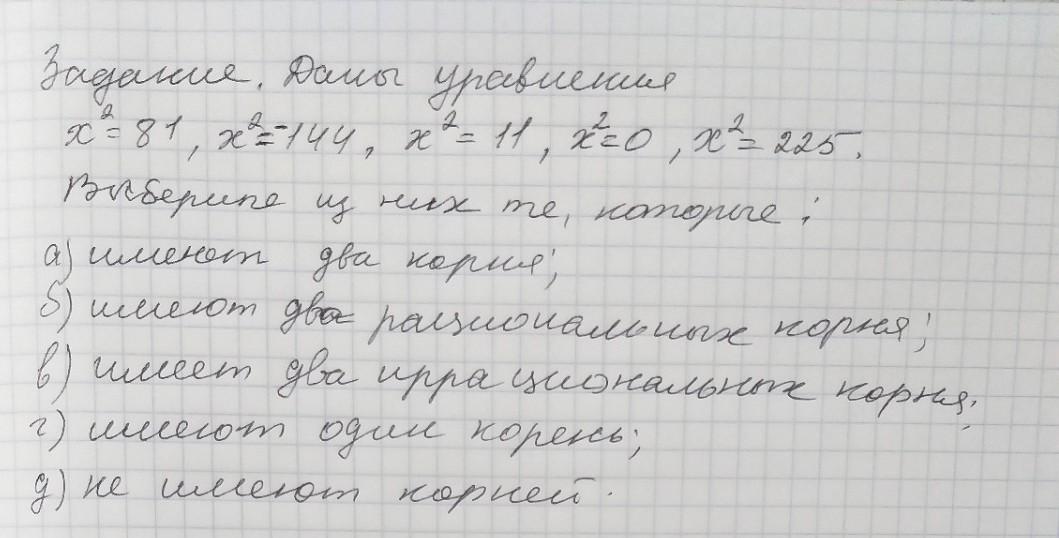 Задание. Даны уравнения
x²=81, x²=-144, x²=11, x²=0, x²=225.
Выберите из них те, которые:
а) имеют два корня;
б) имеют два рациональных корня;
в) имеет два иррациональных корня;
г) имеют один корень;
д) не имеют корней.